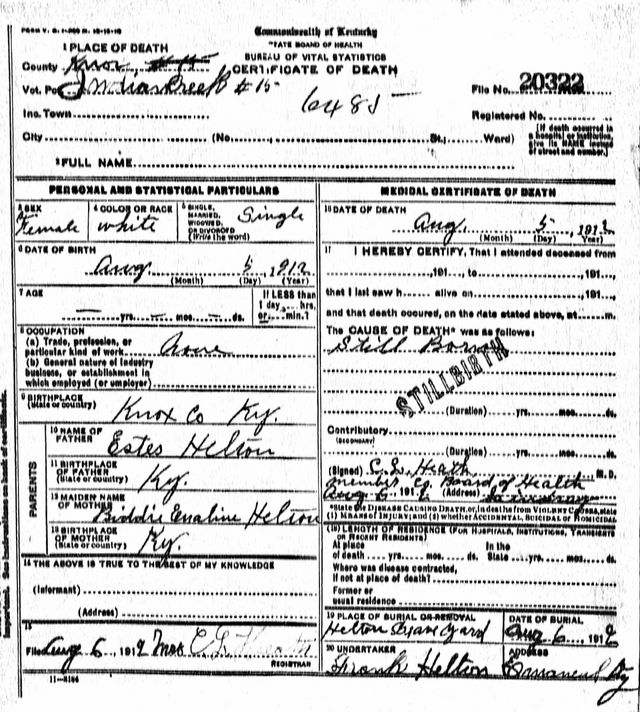 FORM V. S. 1-
Commonwealth of Kentucky
STATE BOARD OF HEALTH
BUREAU OF VITAL STATISTICS
CERTIFICATE OF DEATH
1 PLACE OF DEATH
County Knox #15
Vot. Pct Indian Creek #15
6485
File No. 20322
Registered No.
Inc. Town
(If death occurred in a hospital or institution, give its NAME instead of street and number.)
City (No. St.; Ward)
2 FULL NAME
PERSONAL AND STATISTICAL PARTICULARS
3 SEX
Female
4 COLOR OR RACE
White
5 SINGLE, MARRIED, WIDOWED, OR DIVORCED (Write the word)
Single
6 DATE OF BIRTH
Aug. 5, 1912
(Month) (Day) (Year)
7 AGE
yrs. mos. ds.
If LESS than 1 day, hrs. or min.?
8 OCCUPATION
(a) Trade, profession, or particular kind of work None
(b) General nature of industry business, or establishment in which employed (or employer)
9 BIRTHPLACE
(State or country)
Knox Co Ky.
PARENTS
10 NAME OF FATHER
Estes Helton
11 BIRTHPLACE OF FATHER
(State or country)
Ky.
12 MAIDEN NAME OF MOTHER
Biddie Emaline Helton
13 BIRTHPLACE OF MOTHER
(State or country)
Ky.
14 THE ABOVE IS TRUE TO THE BEST OF MY KNOWLEDGE
(Informant)
(Address)
15
Filed Aug 6, 1912 Mrs C L Heath
REGISTRAR
11-3184
MEDICAL CERTIFICATE OF DEATH
16 DATE OF DEATH
Aug. 5, 1912
(Month) (Day) (Year)
17 I HEREBY CERTIFY, That I attended deceased from
, 191 , to , 191 ,
that I last saw h alive on , 191 ,
and that death occured, on the date stated above, at m.
The CAUSE OF DEATH* was as follows:
Still Born
STILLBIRTH
(Duration) yrs. mos. ds.
Contributory
(SECONDARY)
(Duration) yrs. mos. ds.
(Signed) C. L. Heath M. D.
member Co. Board of Health
Aug 6, 1912 (Address)
*State the DISEASE CAUSING DEATH, or, in deaths from VIOLENT CAUSES, state (1) MEANS OF INJURY; and (2) whether ACCIDENTAL, SUICIDAL or HOMICIDAL
(18) LENGTH OF RESIDENCE (FOR HOSPITALS, INSTITUTIONS, TRANSIENTS OR RECENT RESIDENTS)
At place of death yrs. mos. ds. In the State yrs. mos. ds.
Where was disease contracted,
If not at place of death?
Former or
usual residence
19 PLACE OF BURIAL OR REMOVAL
Helton Graveyard
DATE OF BURIAL
Aug 6, 1912
20 UNDERTAKER
Frank Helton
ADDRESS
Ky
Important. See instructions on back of certificate.